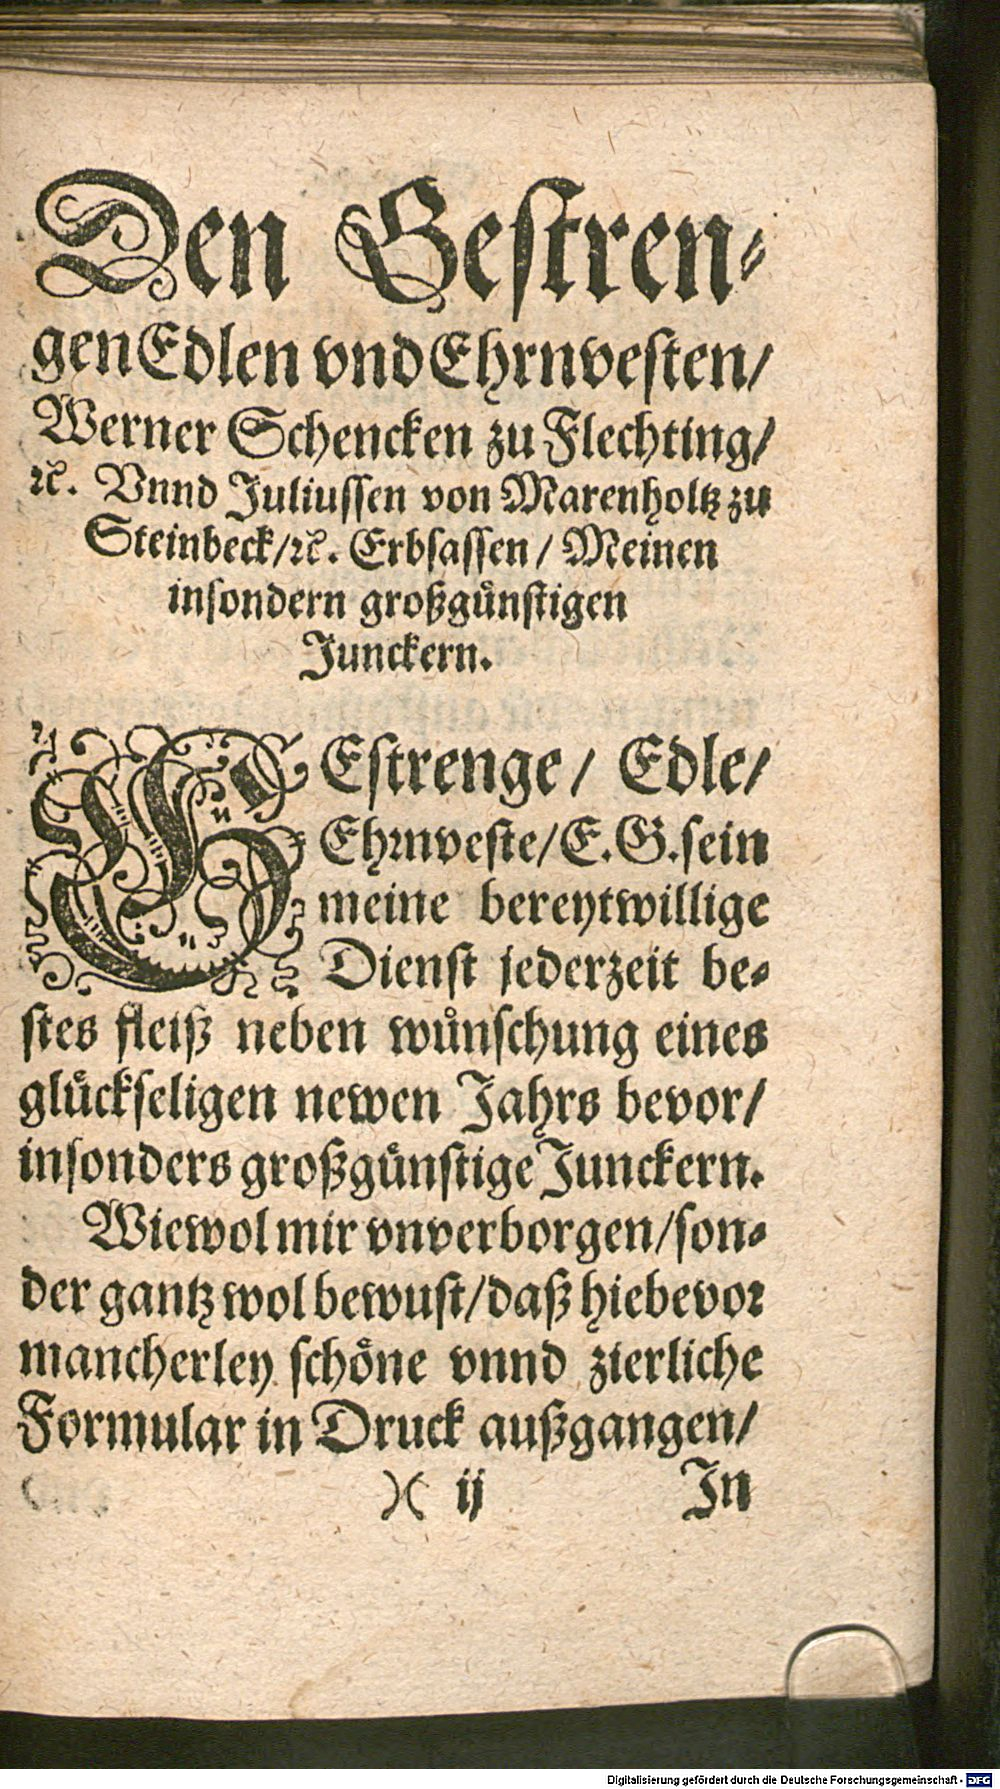 Den Gestren⸗
gen Edlen vnd Ehrnvesten/
Werner Schencken zu Flechting/
ꝛc. Vnnd Juliussen von Marenholtz zu
Steinbeck/ꝛc. Erbsassen/ Meinen
insondern großgünstigen
Junckern.
GEstrenge/ Edle/
Ehrnveste/E.G.sein
meine bereytwillige
Dienst jederzeit be⸗
stes fleiß neben wünschung eines
glückseligen newen Jahrs bevor/
insonders großgünstige Junckern.
Wiewol mir vnverborgen/son⸗
der gantz wol bewust/daß hiebevor
mancherley schöne vnnd zierliche
Formular in Druck außgangen/
)( ij In
Digitalisierung gefördert durch die Deutsche Forschungsgemeinschaft - DFG